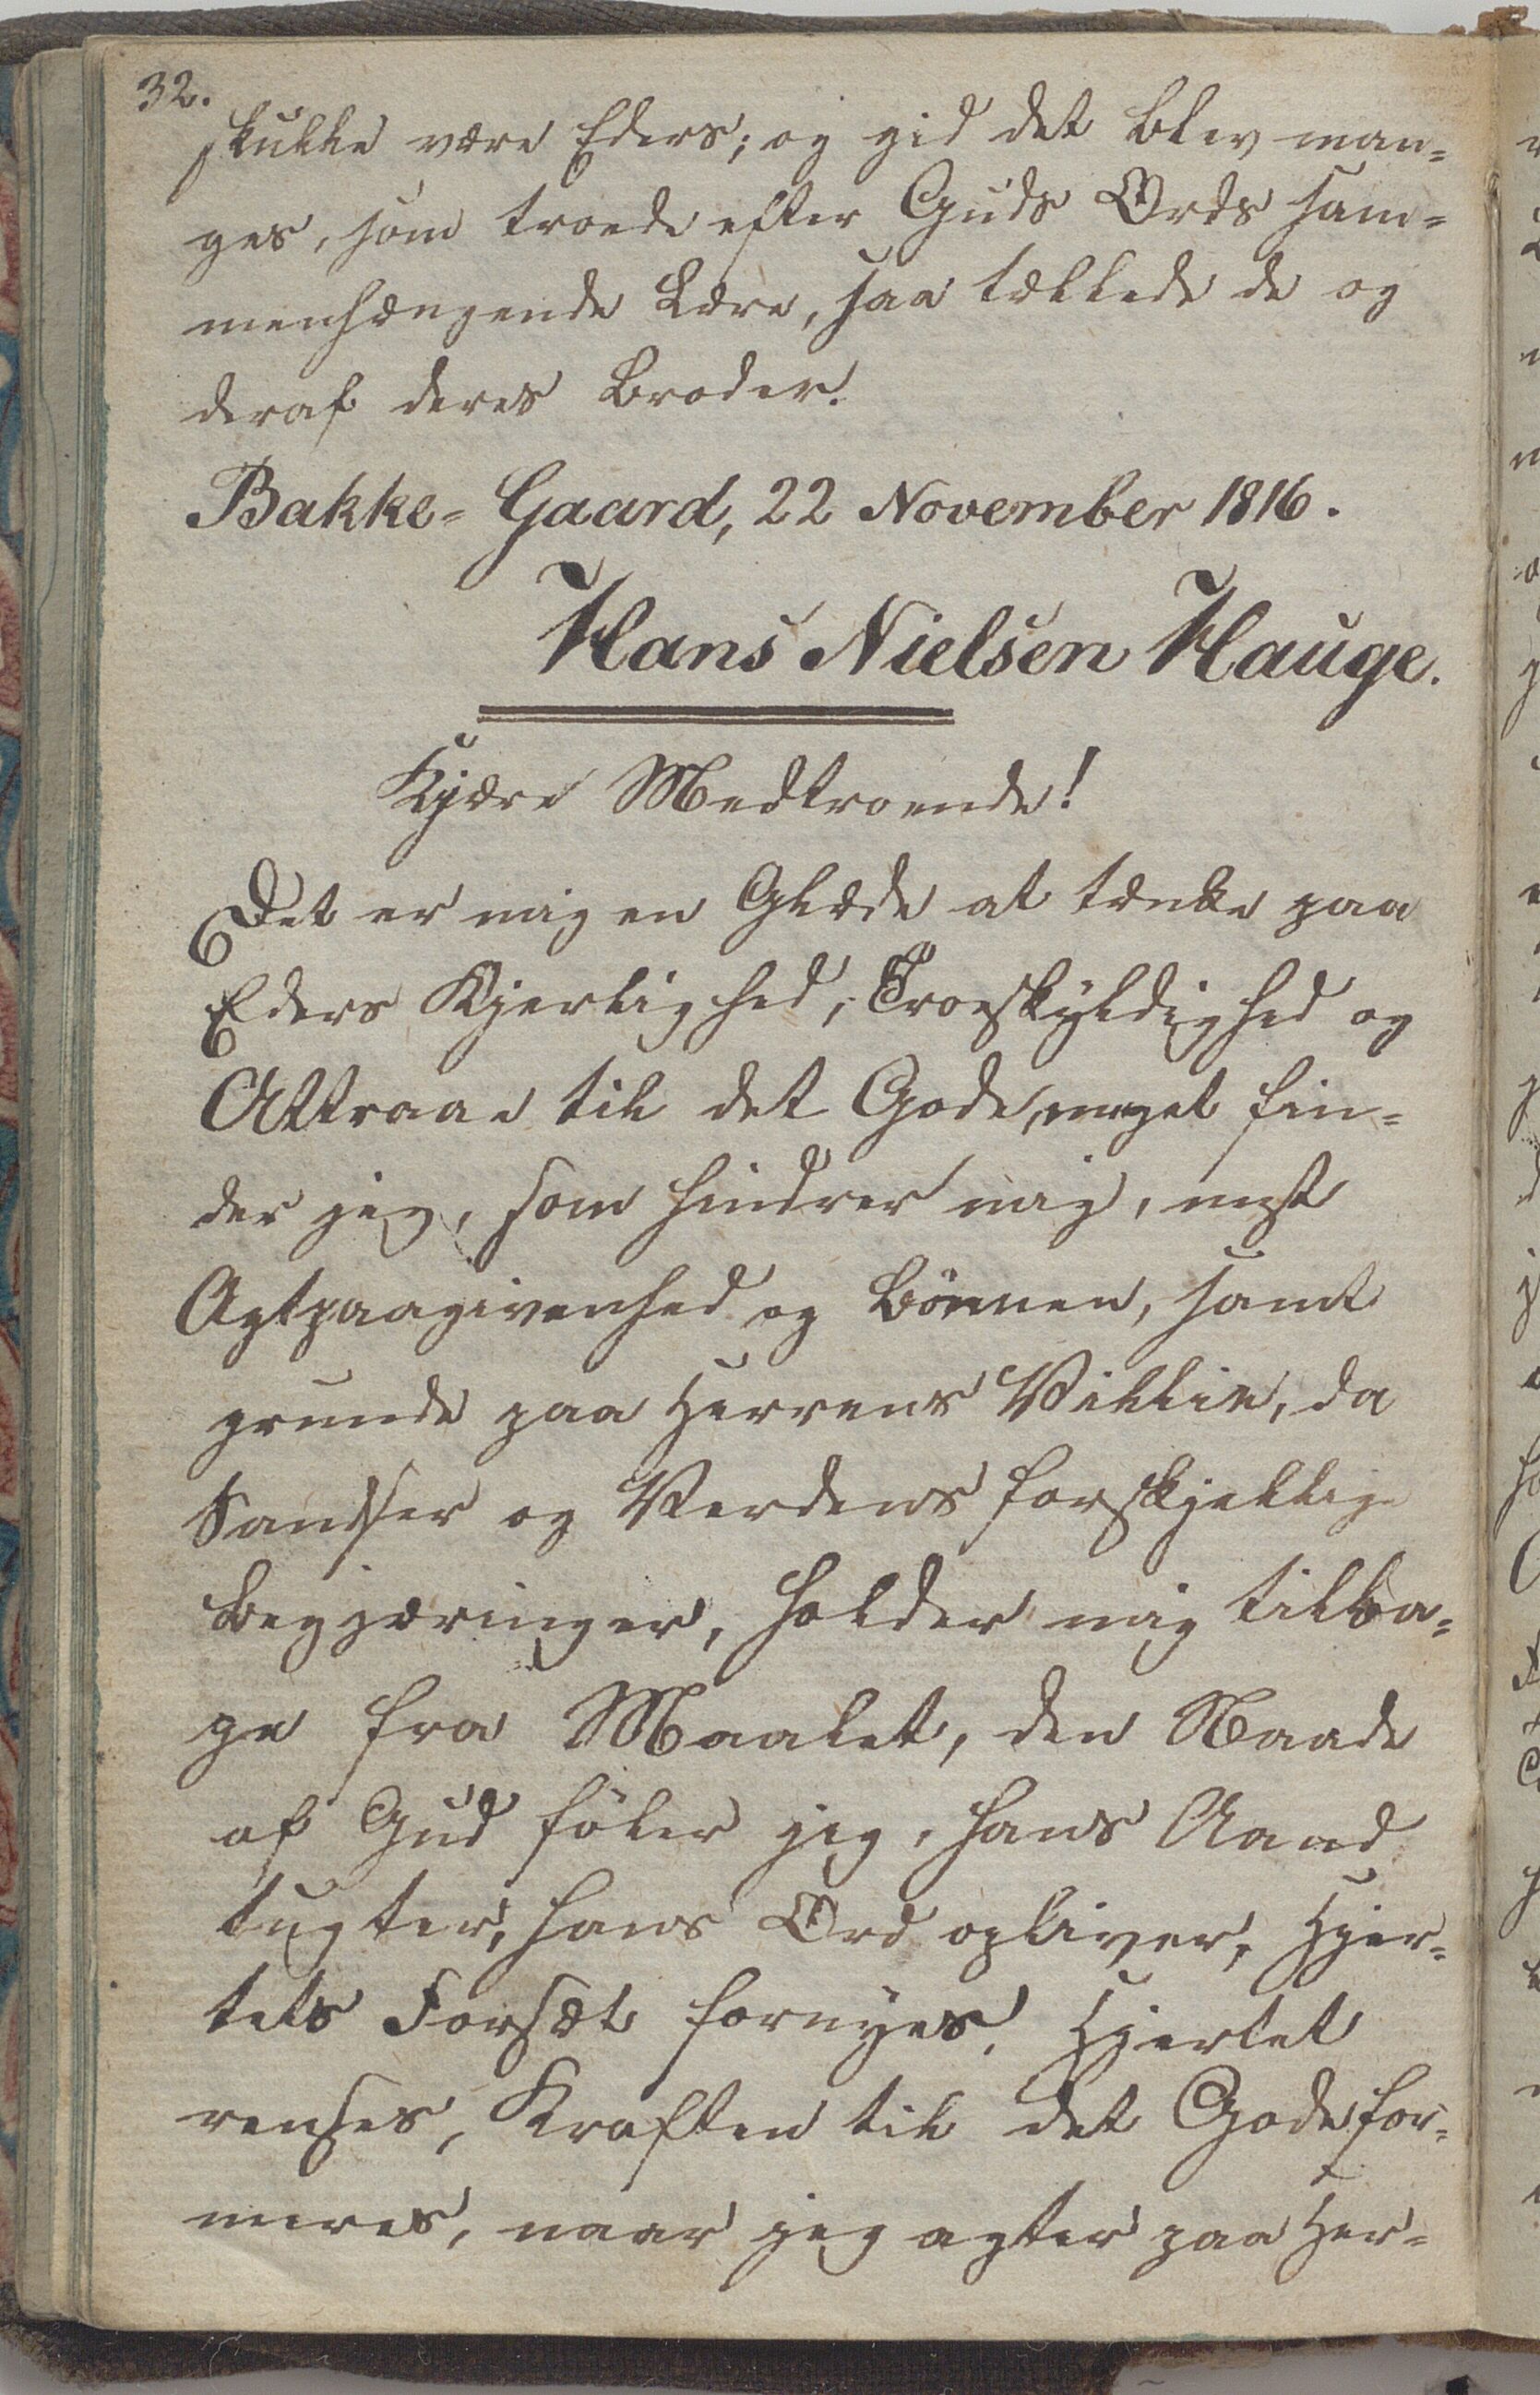 32.
skulle være Eders; og gid det blev man=
ges, som troede efter Guds Ords sam=
menhængende Lære, saa tællede de og
deraf deres Broder.
Bakke= Gaard, 22 November 1816.
Hans Nielsen Hauge.
Kjære Medtroende!
Det er mig en Glæde at tænke paa
Eders Kjerlighed, Troeskyldighed og
Attraae til det Gode, meget fin=
der jeg, som hindrer mig, mest
Agtpaagivenhed og Bønnen, samt
grunde paa Herrens Villie, da
Sandser og Verdens forskjellige
Begjæringer, holder mig tilba=
ge fra Maalet, den Naade
af Gud føler jeg, hans Aand
tugter, hans Ord opliver, Hjer=
tets Forsæt fornyes, Hjertet
renses, Kraften til det Gode for=
meres, naar jeg agter paa Her=